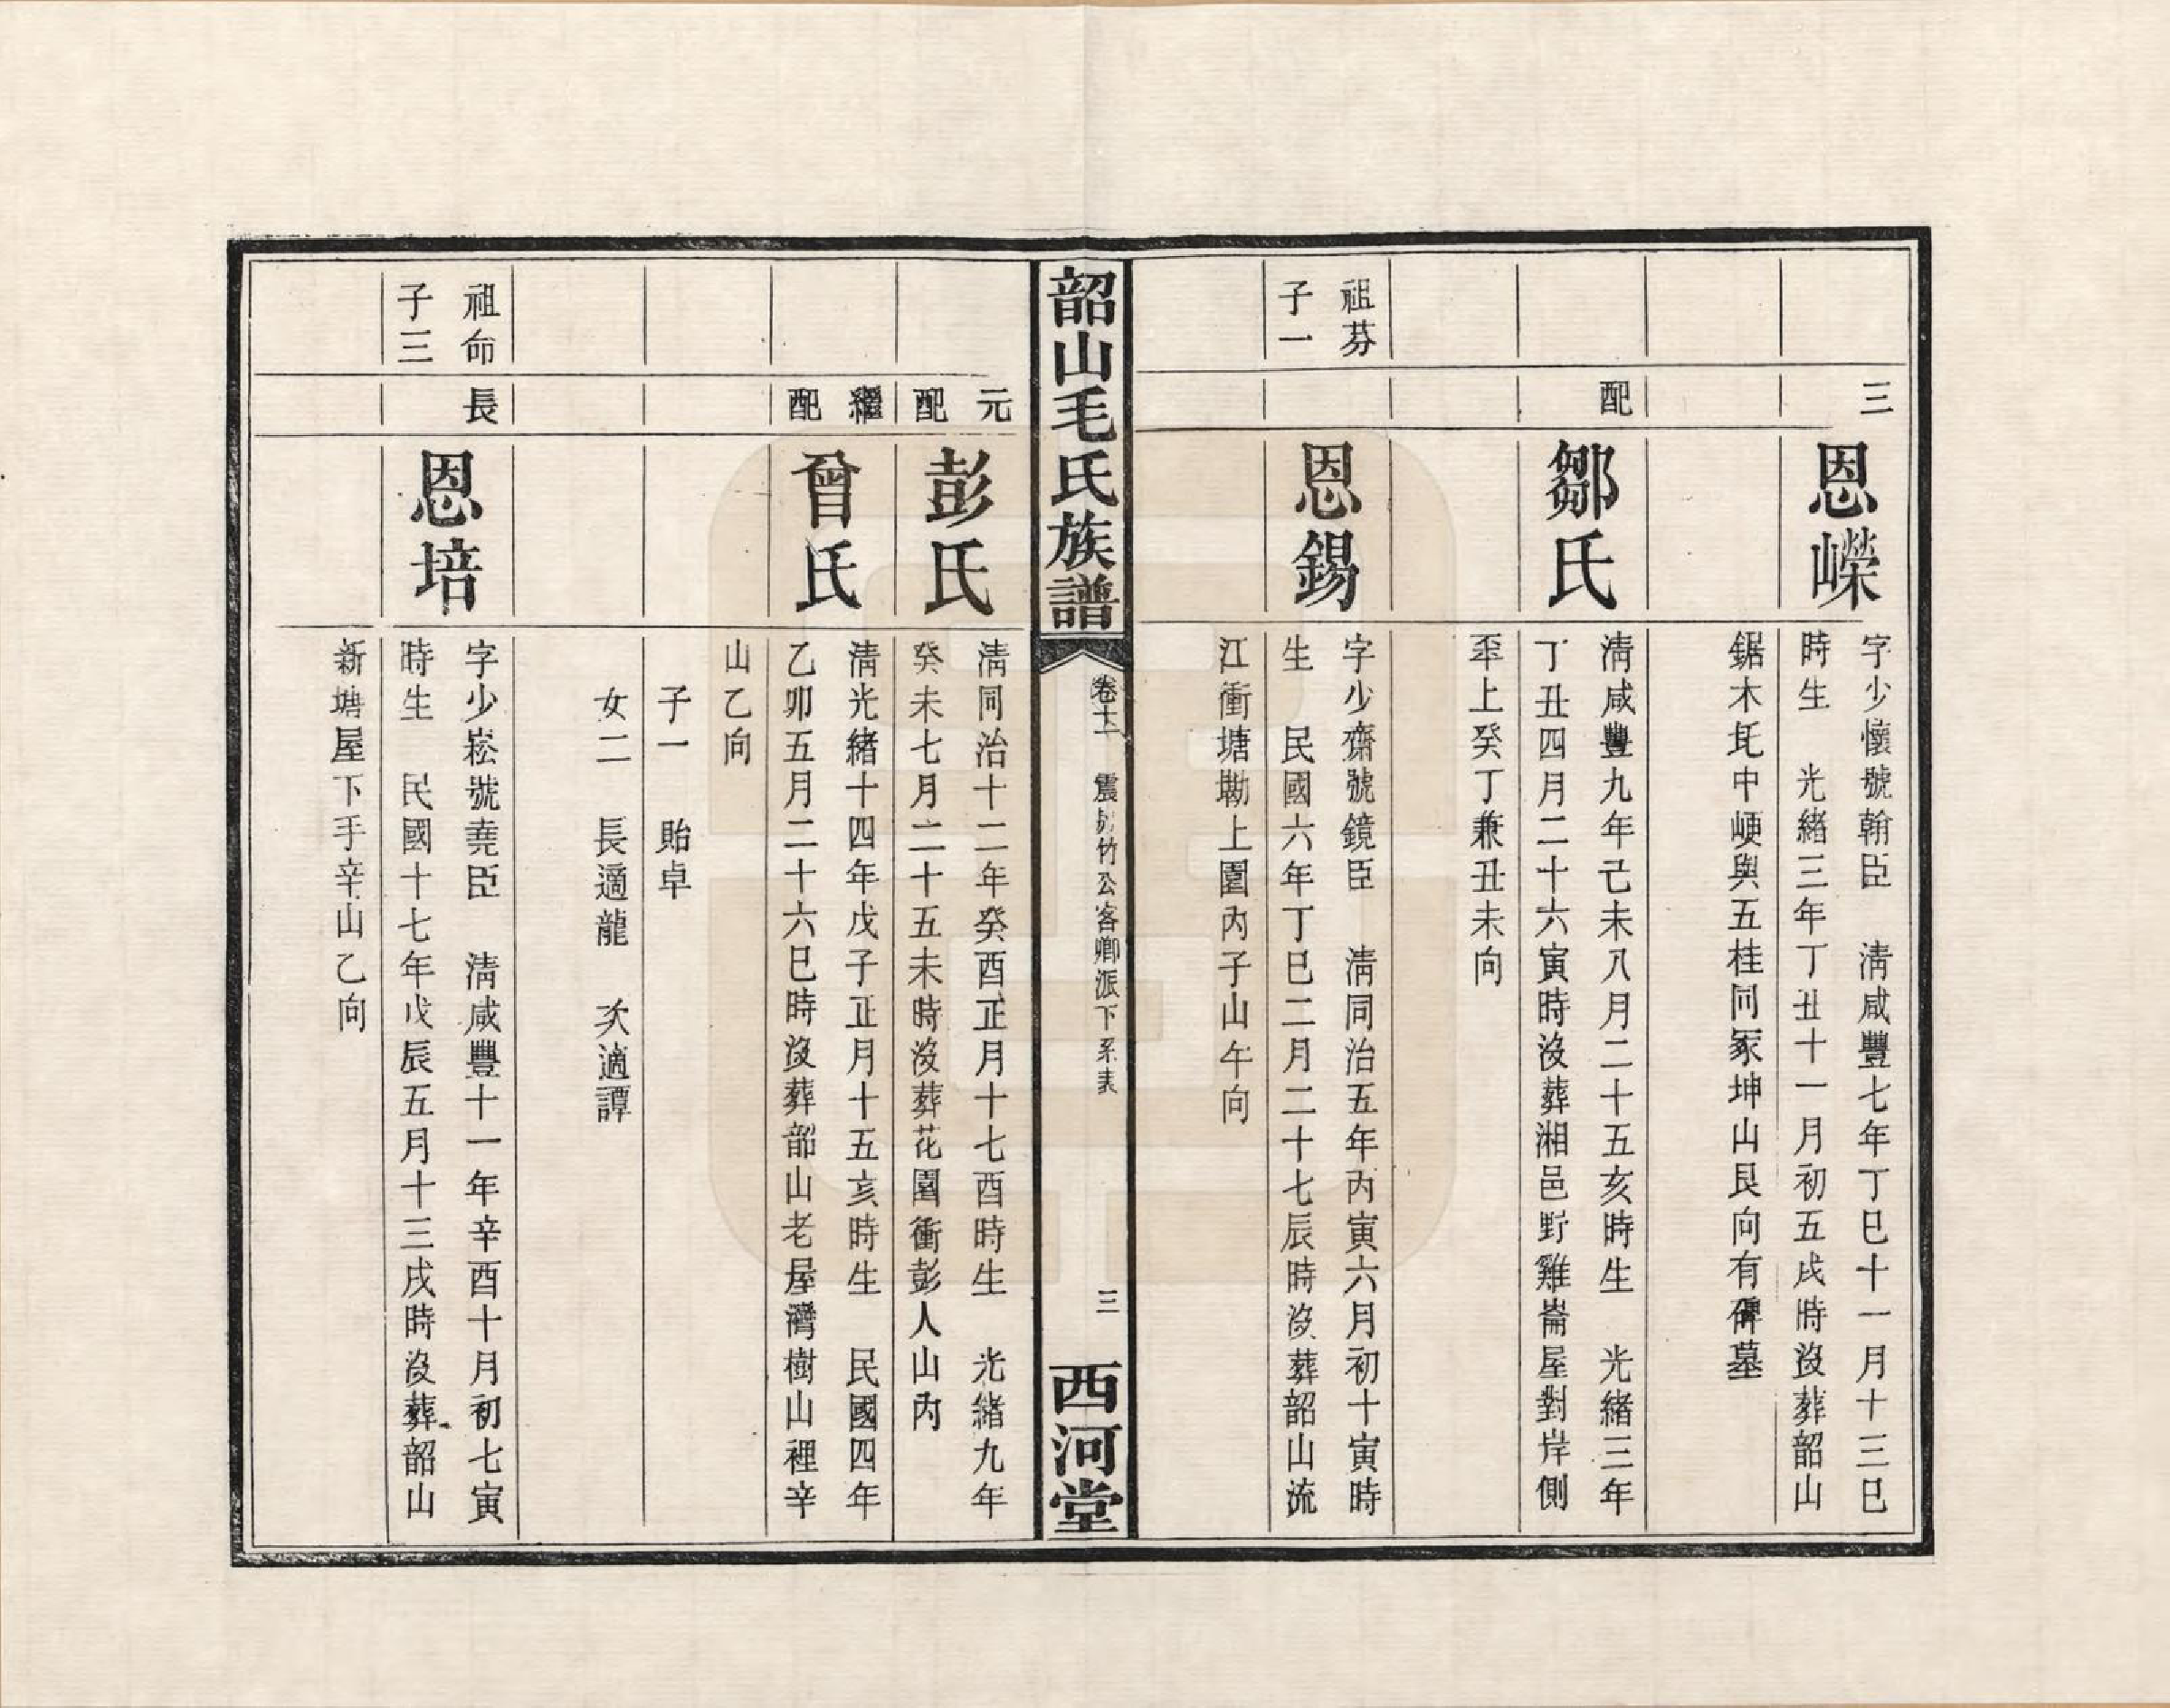 三
恩嶸
字少懷號翰臣　清咸豐七年丁巳十一月十三巳
時生　光緒三年丁丑十一月初五戌時沒葬韶山
鋸木坉中崾與五桂同冢坤山艮向有碑墓
配
鄒氏
清咸豐九年己未八月二十五亥時生　光緒三年
丁丑四月二十六寅時沒葬湘邑野雞崙屋對岸側
坙上癸丁兼丑未向
祖芬
子一
恩錫
字少齋號鏡臣　清同治五年丙寅六月初十寅時
生　民國六年丁巳二月二十七辰時沒葬韶山流
江衝塘墈上園內子山午向
韶山毛氏族譜
卷十二　震房竹公客卿派下系表
三
西河堂
元配
彭氏
清同治十二年癸酉正月十七酉時生　光緒九年
癸未七月二十五未時沒葬花園衝彭人山內
繼配
曾氏
清光緒十四年戊子正月十五亥時生　民國四年
乙卯五月二十六巳時沒葬韶山老屋灣樹山裡辛
山乙向
子一　貽卓
女二　長適龍　次適譚
祖命
子三
長
恩培
字少崧號堯臣　清咸豐十一年辛酉十月初七寅
時生　民國十七年戊辰五月十三戌時沒葬韶山
新塘屋下手辛山乙向